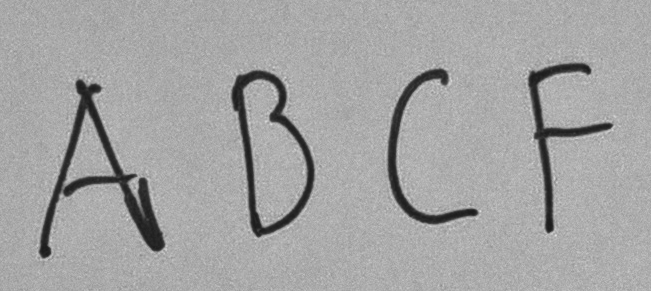 A B C F